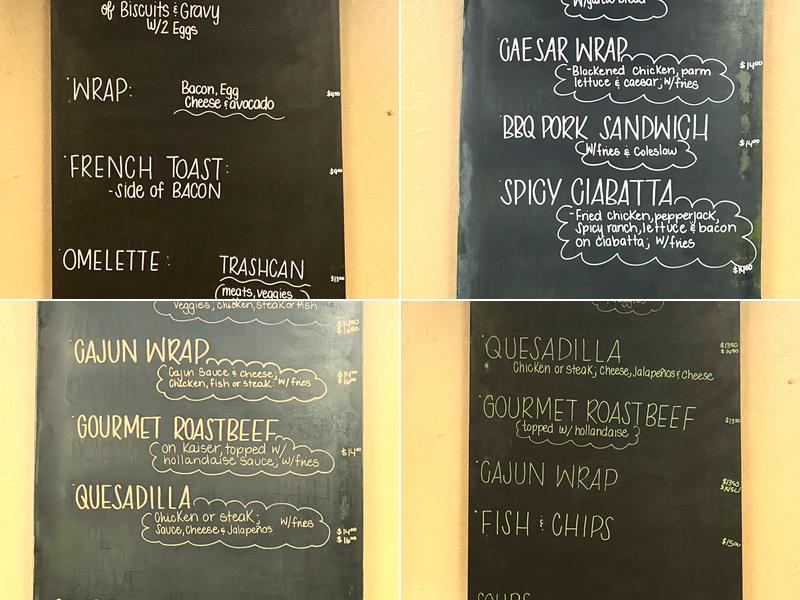 of Biscuits & Gravy
W/2 Eggs
WRAP: Bacon, Egg
Cheese & avocado
FRENCH TOAST:
-side of BACON
OMELETTE: TRASHCAN
meats, veggies
W/garlic bread
CAESAR WRAP
$14.00
-Blackened chicken, parm
lettuce & caesar; W/fries
BBQ PORK SANDWICH
$14.00
W/fries & Coleslaw
SPICY CIABATTA
-Fried chicken, pepperjack,
Spicy ranch, lettuce & bacon
on ciabatta; W/fries
veggies, chicken, steak or fish
CAJUN WRAP
Cajun Sauce & cheese;
Chicken, fish or steak: W/fries
GOURMET ROASTBEEF
on Kaiser, topped w/
hollandaise sauce; W/fries
$14.00
QUESADILLA
Chicken or steak; W/fries
Sauce, Cheese & Jalapeños
$14.00
$16.00
QUESADILLA
$13.50
$14.50
Chicken or steak; cheese, Jalapeños & cheese
GOURMET ROAST BEEF
topped w/ hollandaise
CAJUN WRAP
FISH & CHIPS